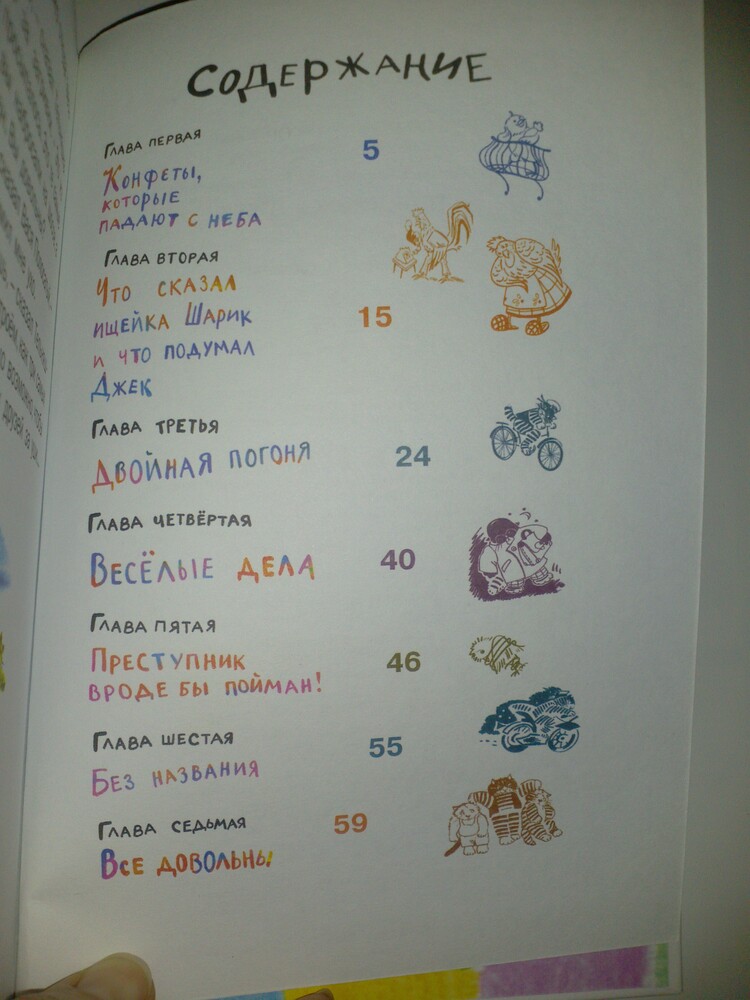 Содержание
Глава первая
5
Конфеты,
которые
падают с неба
Глава вторая
Что сказал
ищейка Шарик
15
и что подумал
Джек
Глава третья
Двойная погоня
24
Глава четвёртая
Весёлые дела
40
Глава пятая
Преступник
46
вроде бы пойман!
Глава шестая
55
Без названия
Глава седьмая
59
Все довольны